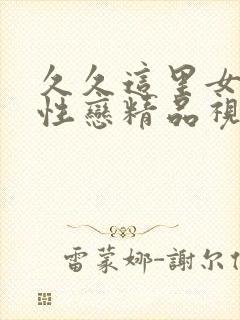 久久這里女
性戀精品視
雷蒙娜-謝尔